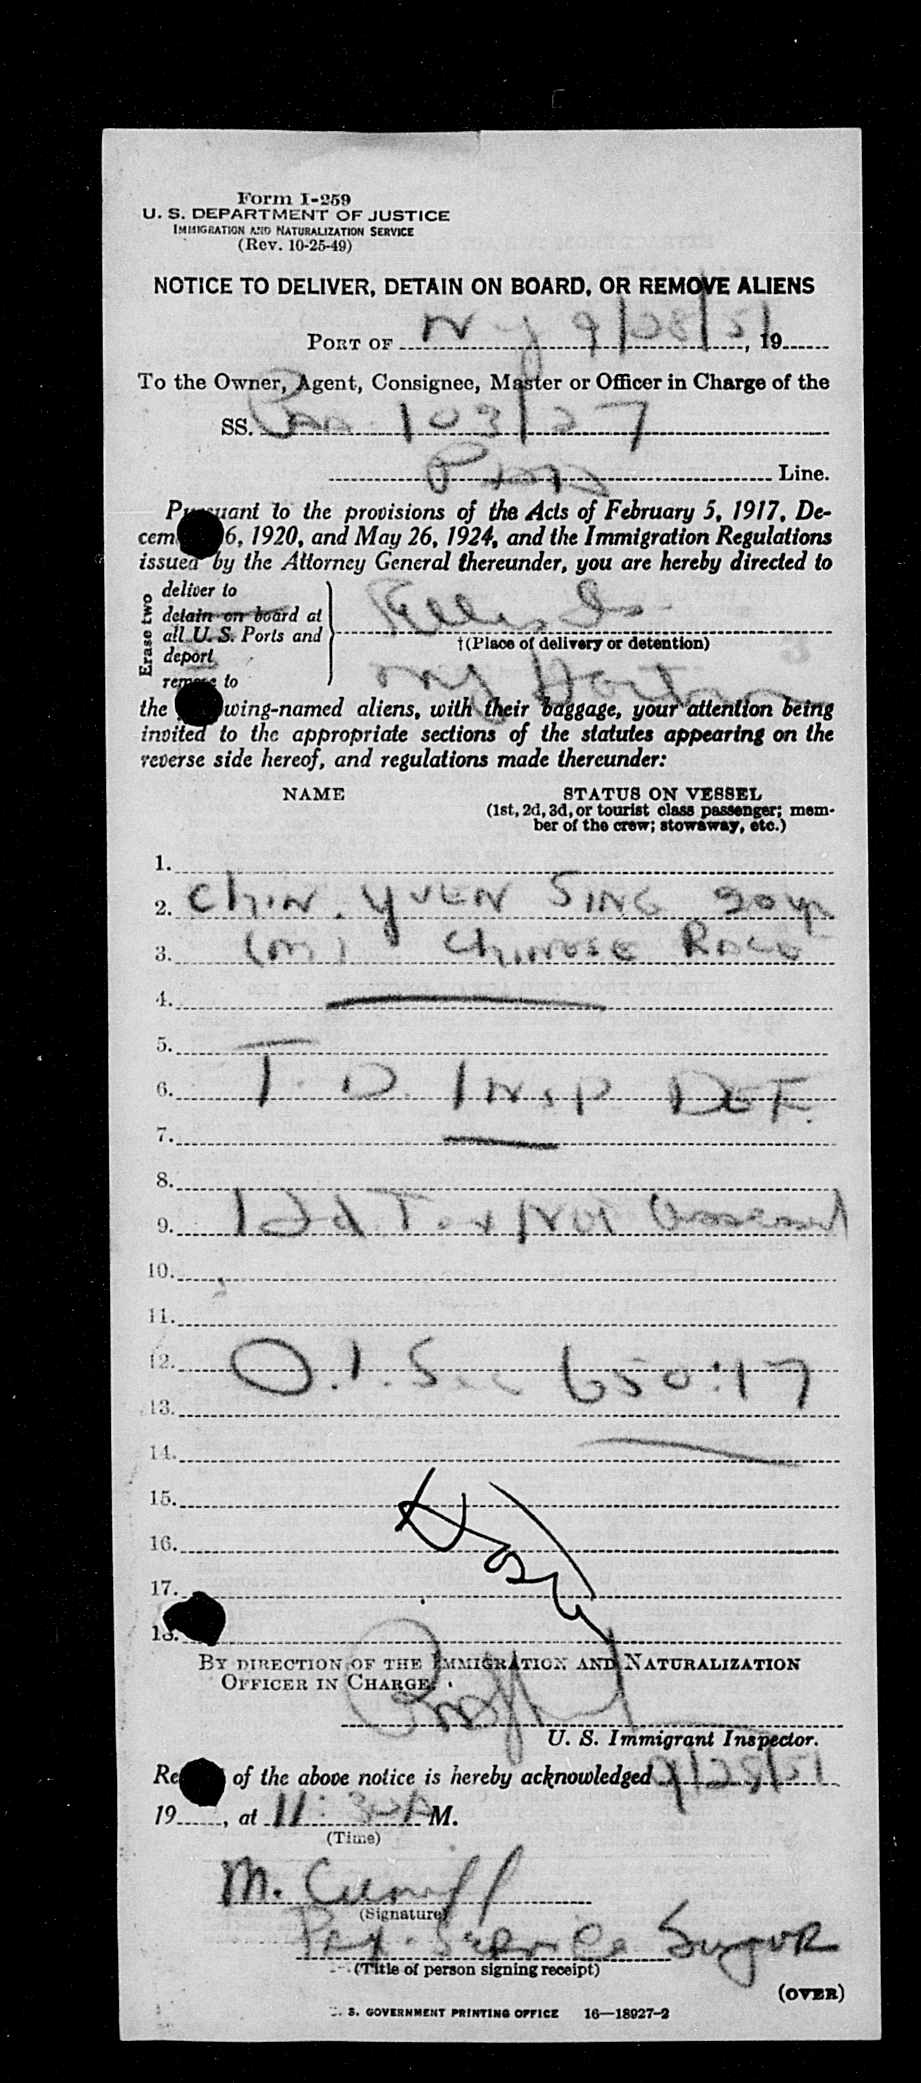 Form I-259
U. S. DEPARTMENT OF JUSTICE
IMMIGRATION AND NATURALIZATION SERVICE
(Rev. 10-25-49)
NOTICE TO DELIVER, DETAIN ON BOARD, OR REMOVE ALIENS
PORT OF NY 9/28/51, 19
To the Owner, Agent, Consignee, Master or Officer in Charge of the
SS. Paa 103/27
Line.
Pursuant to the provisions of the Acts of February 5, 1917, De-
cem 6, 1920, and May 26, 1924, and the Immigration Regulations
issued by the Attorney General thereunder, you are hereby directed to
Erase two
deliver to
detain on board at
all U. S. Ports and
deport
remove to
Ellis Is
†(Place of delivery or detention)
NY
the wing-named aliens, with their baggage, your attention being
invited to the appropriate sections of the statutes appearing on the
reverse side hereof, and regulations made thereunder:
NAME STATUS ON VESSEL
(1st, 2d, 3d, or tourist class passenger; mem-
ber of the crew; stowaway, etc.)
1.
2. CHIN. YUEN SING 20 yr
3. (M) CHINESE RACE
4.
5.
6. T. D. INSP DEF.
7.
8.
9. Hd Tax Not Assessed
10.
11.
12. O.I. Sec 650:17
13.
14.
15.
16.
17.
18.
BY DIRECTION OF THE IMMIGRATION AND NATURALIZATION
OFFICER IN CHARGE.
U. S. Immigrant Inspector.
Re of the above notice is hereby acknowledged 9/28/51
19, at 11:30 A M.
(Time)
M. Cunniff
(Signature)
Pax. Service Supvr
(Title of person signing receipt)
(OVER)
U. S. GOVERNMENT PRINTING OFFICE 16—18927-2